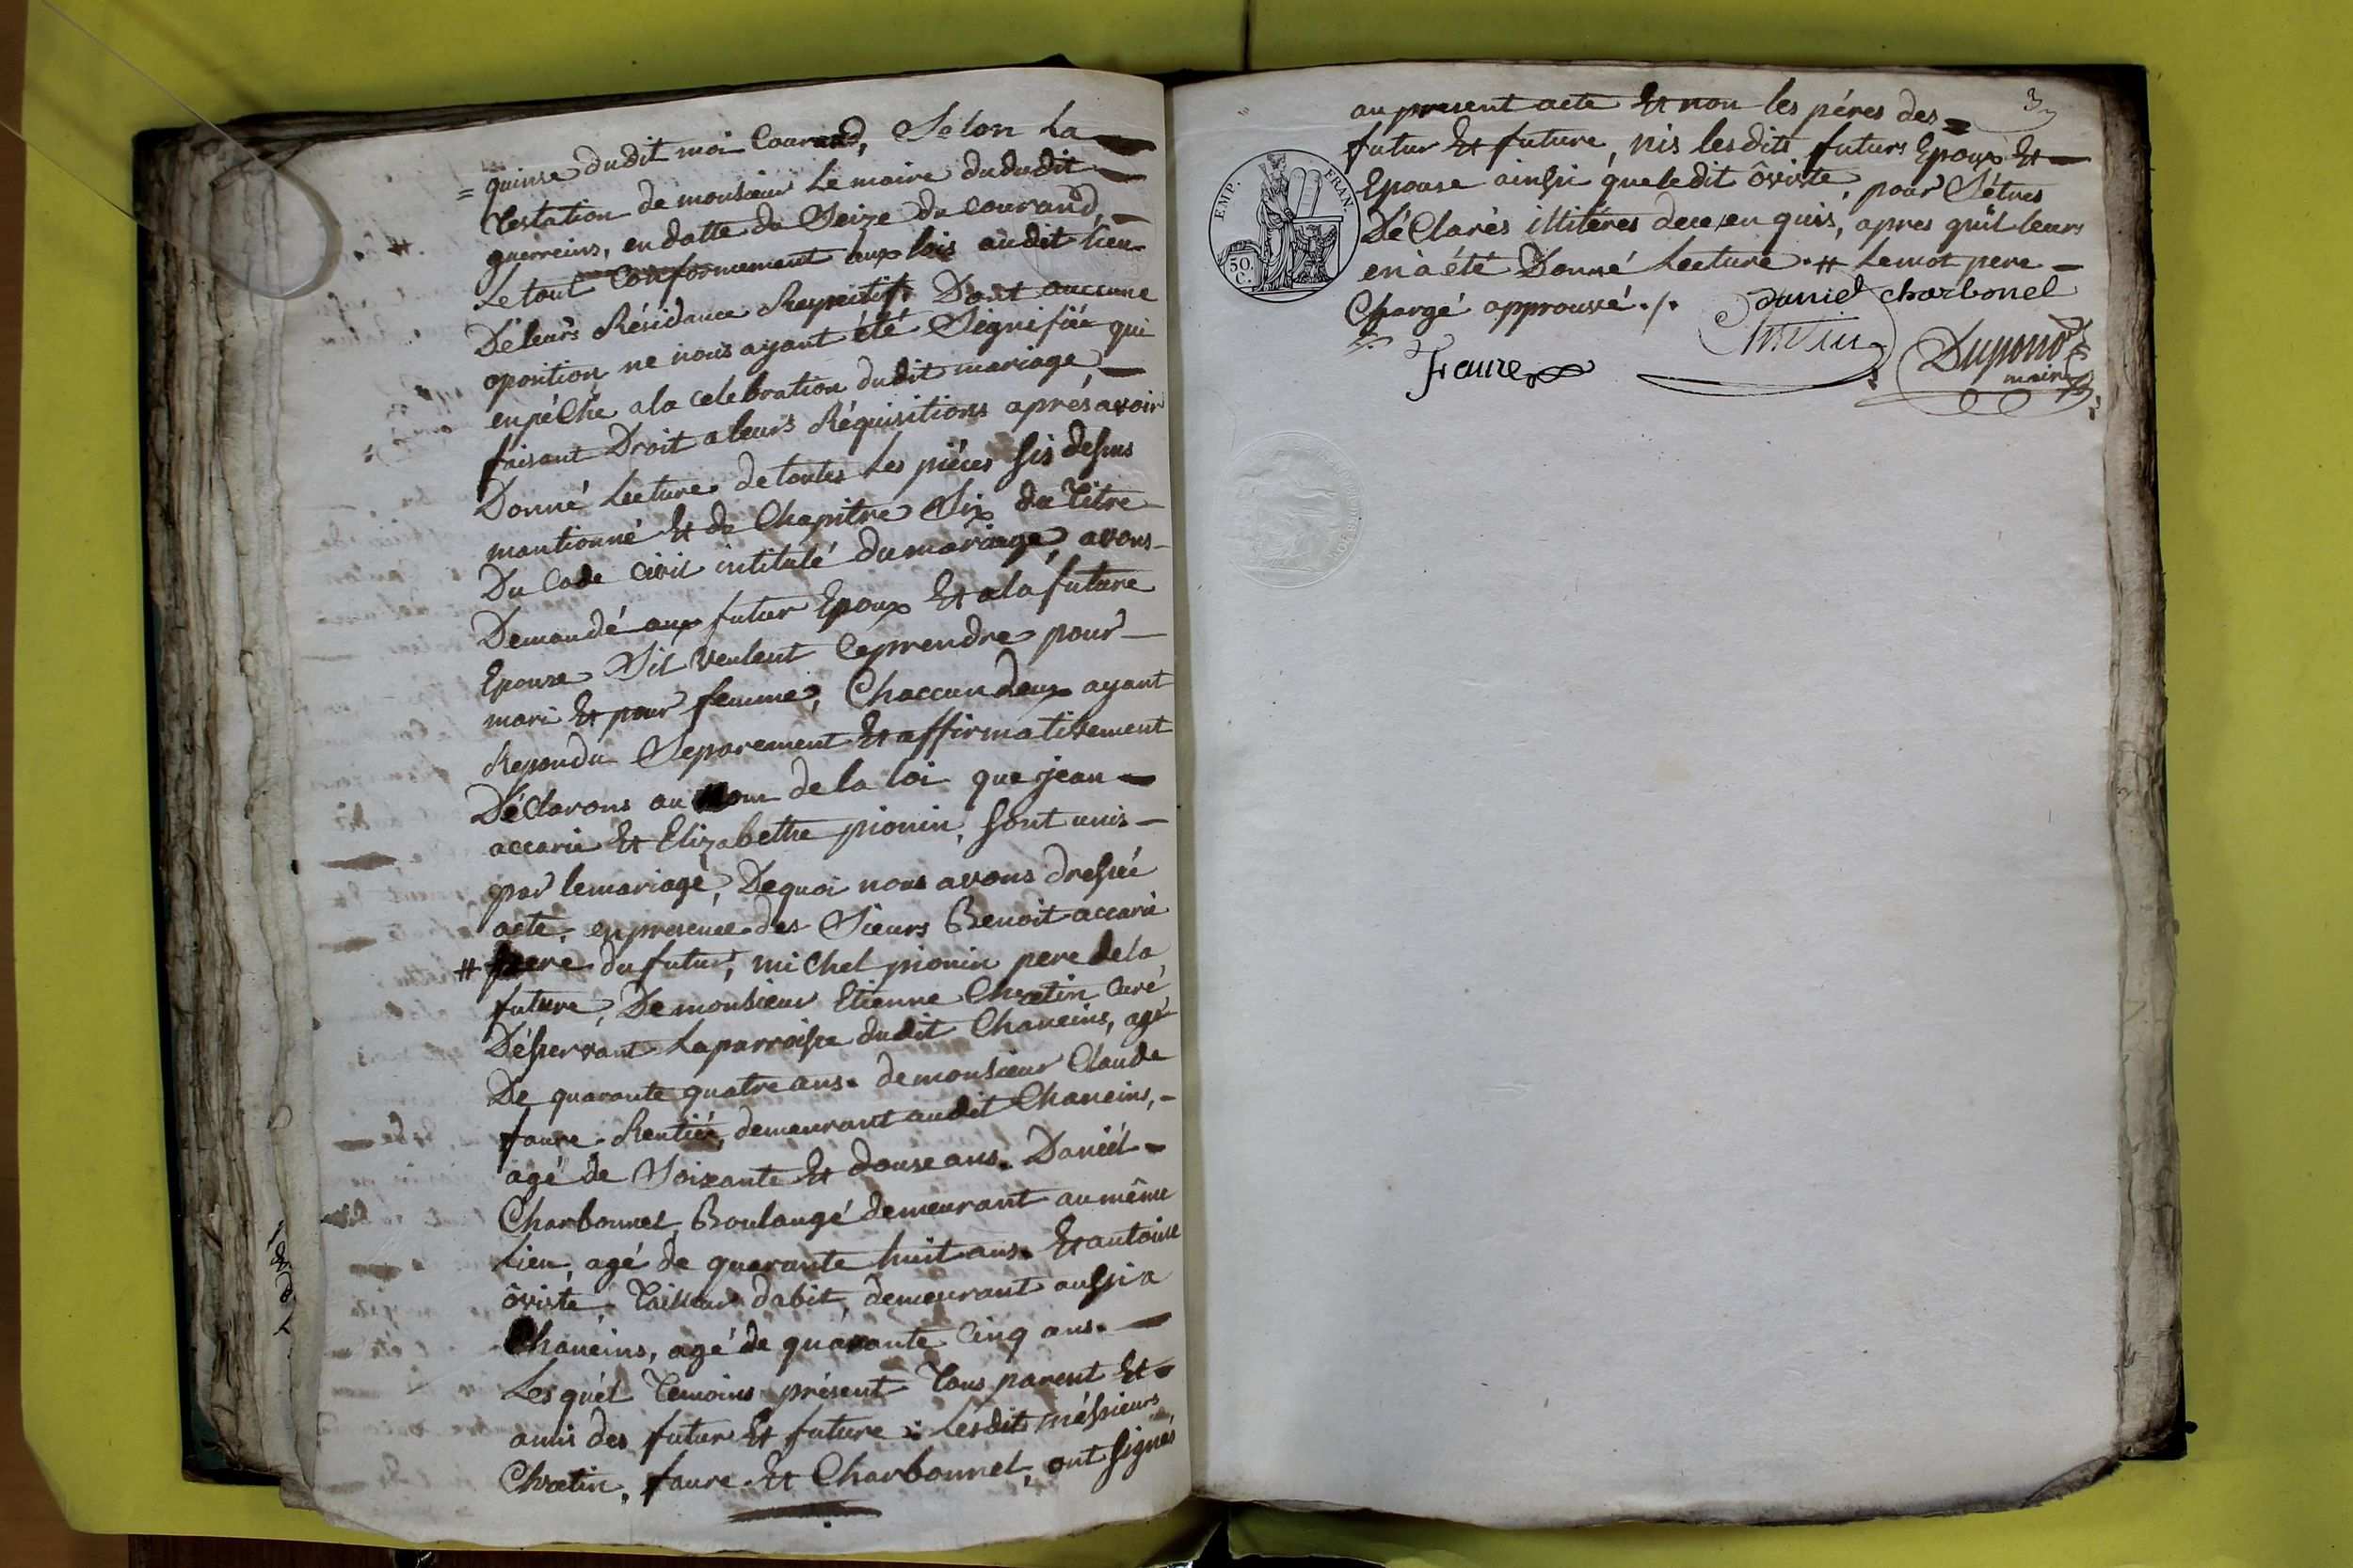 = quinse dudit moi Courand, Selon La
testation de monsieur Le maire dududit
guerreins, en datte du Seize du Courand,
Le tout Conformement aux lois audit lieu
De leurs Résidance Respectif. Dont auccune
oposition ne nous ayant été Signifiée qui
enpéChé a la celebration dudit mariage,
faisant Droit a leurs Réquisitions aprés avoir
Donné Lecture de toutes Les piéces Sis desus
mantionné Et du Chapitre Six du titre
Du Code Civil intitulé du mariage, avons
Demandé aux futur Epoux Et a la future
Epouse Sil veulent Ceprendre pour
mari Et pour femme, Chaccun deux ayant
Repondu Separement Et affirmativement
DéClarons au Nom de la loi que jean
accarie Et Elizabethe pionin, Sont unis
par lemariage, De quoi nous avons dressée
acte, en presence des Sieurs Benoit accarie
# pere du futur, miChel pionin pere de la
future, De monsieur Etienne Chretin Curé
Déservant La parroisse dudit Chaneins, agé
De quarante quatre ans. de monsieur Claude
faure Rentiér, demeurant audit Chaneins,
agé de Soixante Et douse ans. Daniél
Charbonnel, Boulangé demeurant au même
Lieu, agé de quarante huit ans. Et antoine
ôviste Tailleur dabit, demeurant aussi a
Chaneins, agé de quarante Cinq ans.
Les quél temoins présent tous parent Et
amis des futur Et future : Lesdits méssieurs
Chretin, faure Et Charbonnel, ont Signés
au present acte Et non les péres des
3
futur Et future, nis lesdits futurs Epoux Et
Epouse ainssi que ledit ôviste, pour Sétres
DéClarés illitéres de ce en quis, apres qu'il leurs
en a été Donné Lecture. # Le mot pere
Chargé approuvé ./.
EMP. FRAN.
50 C.
daniel charbonel
Faure
Dupond
maire